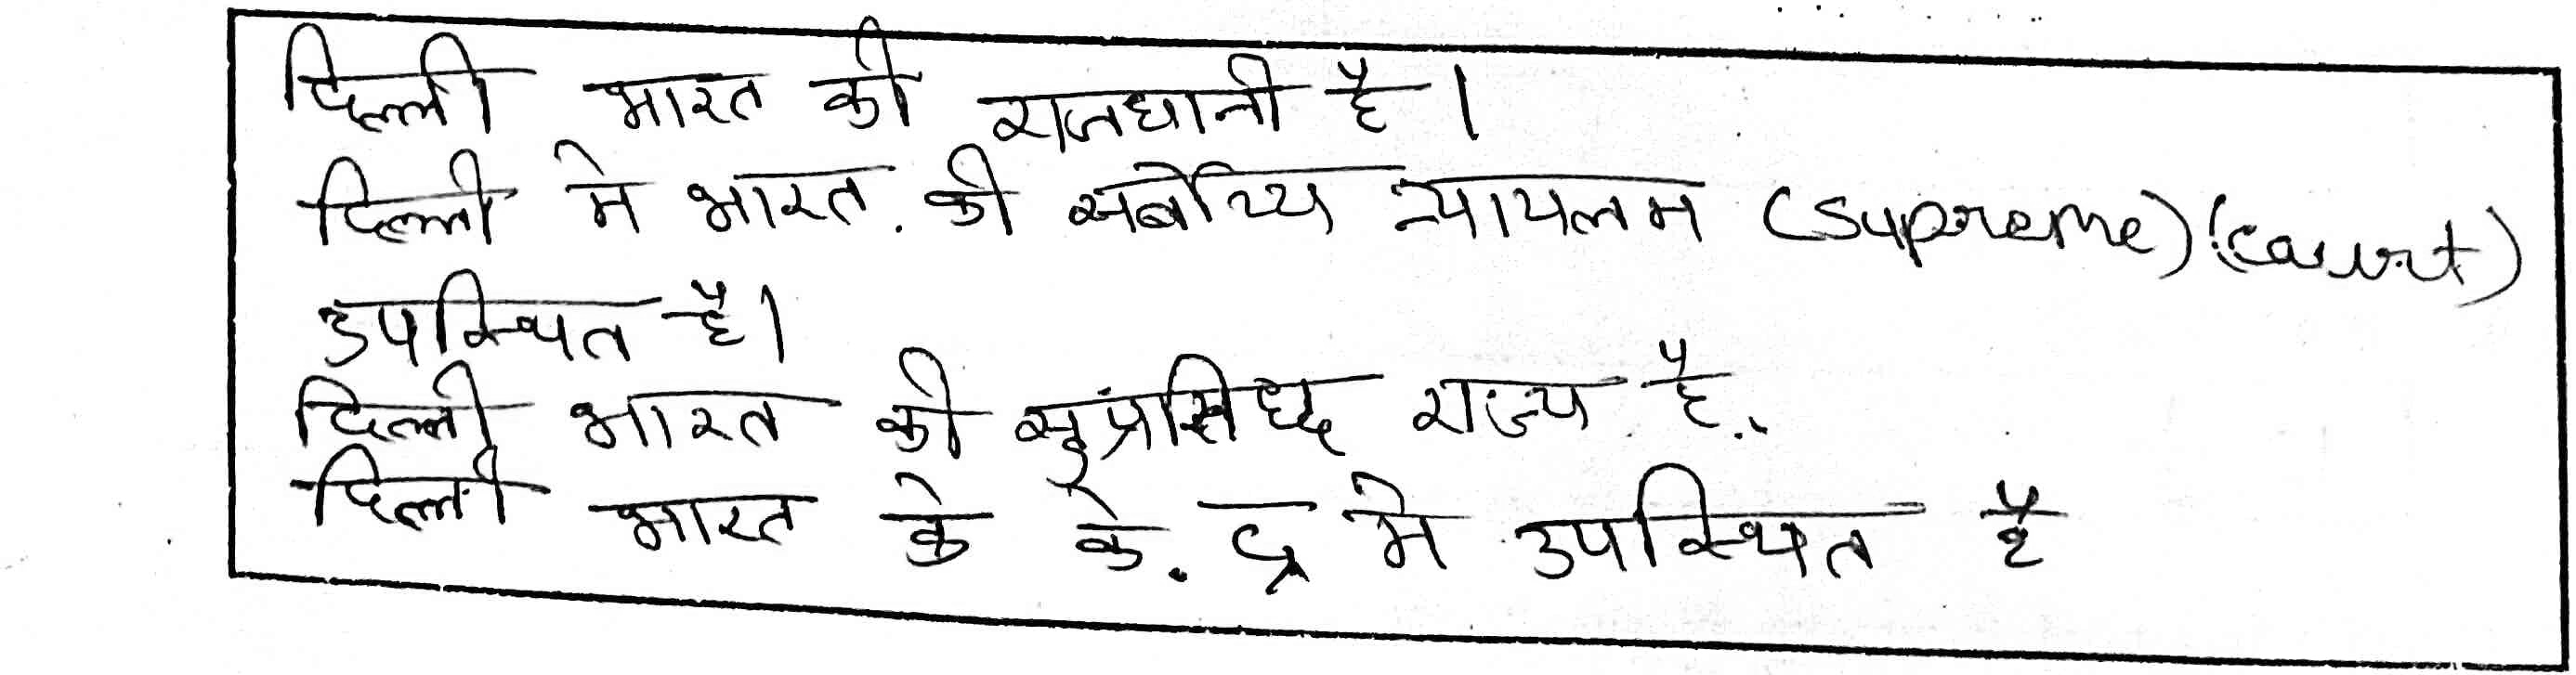 दिल्ली भारत की राजधानी है।
दिल्ली मे भारत. की सर्बोच्य न्यायलम (Supreme) (court)
उपस्थित है।
दिल्ली भारत की सुप्रसिध्द राज्य है.
दिल्ली भारत के के.द्र मे उपस्थित है